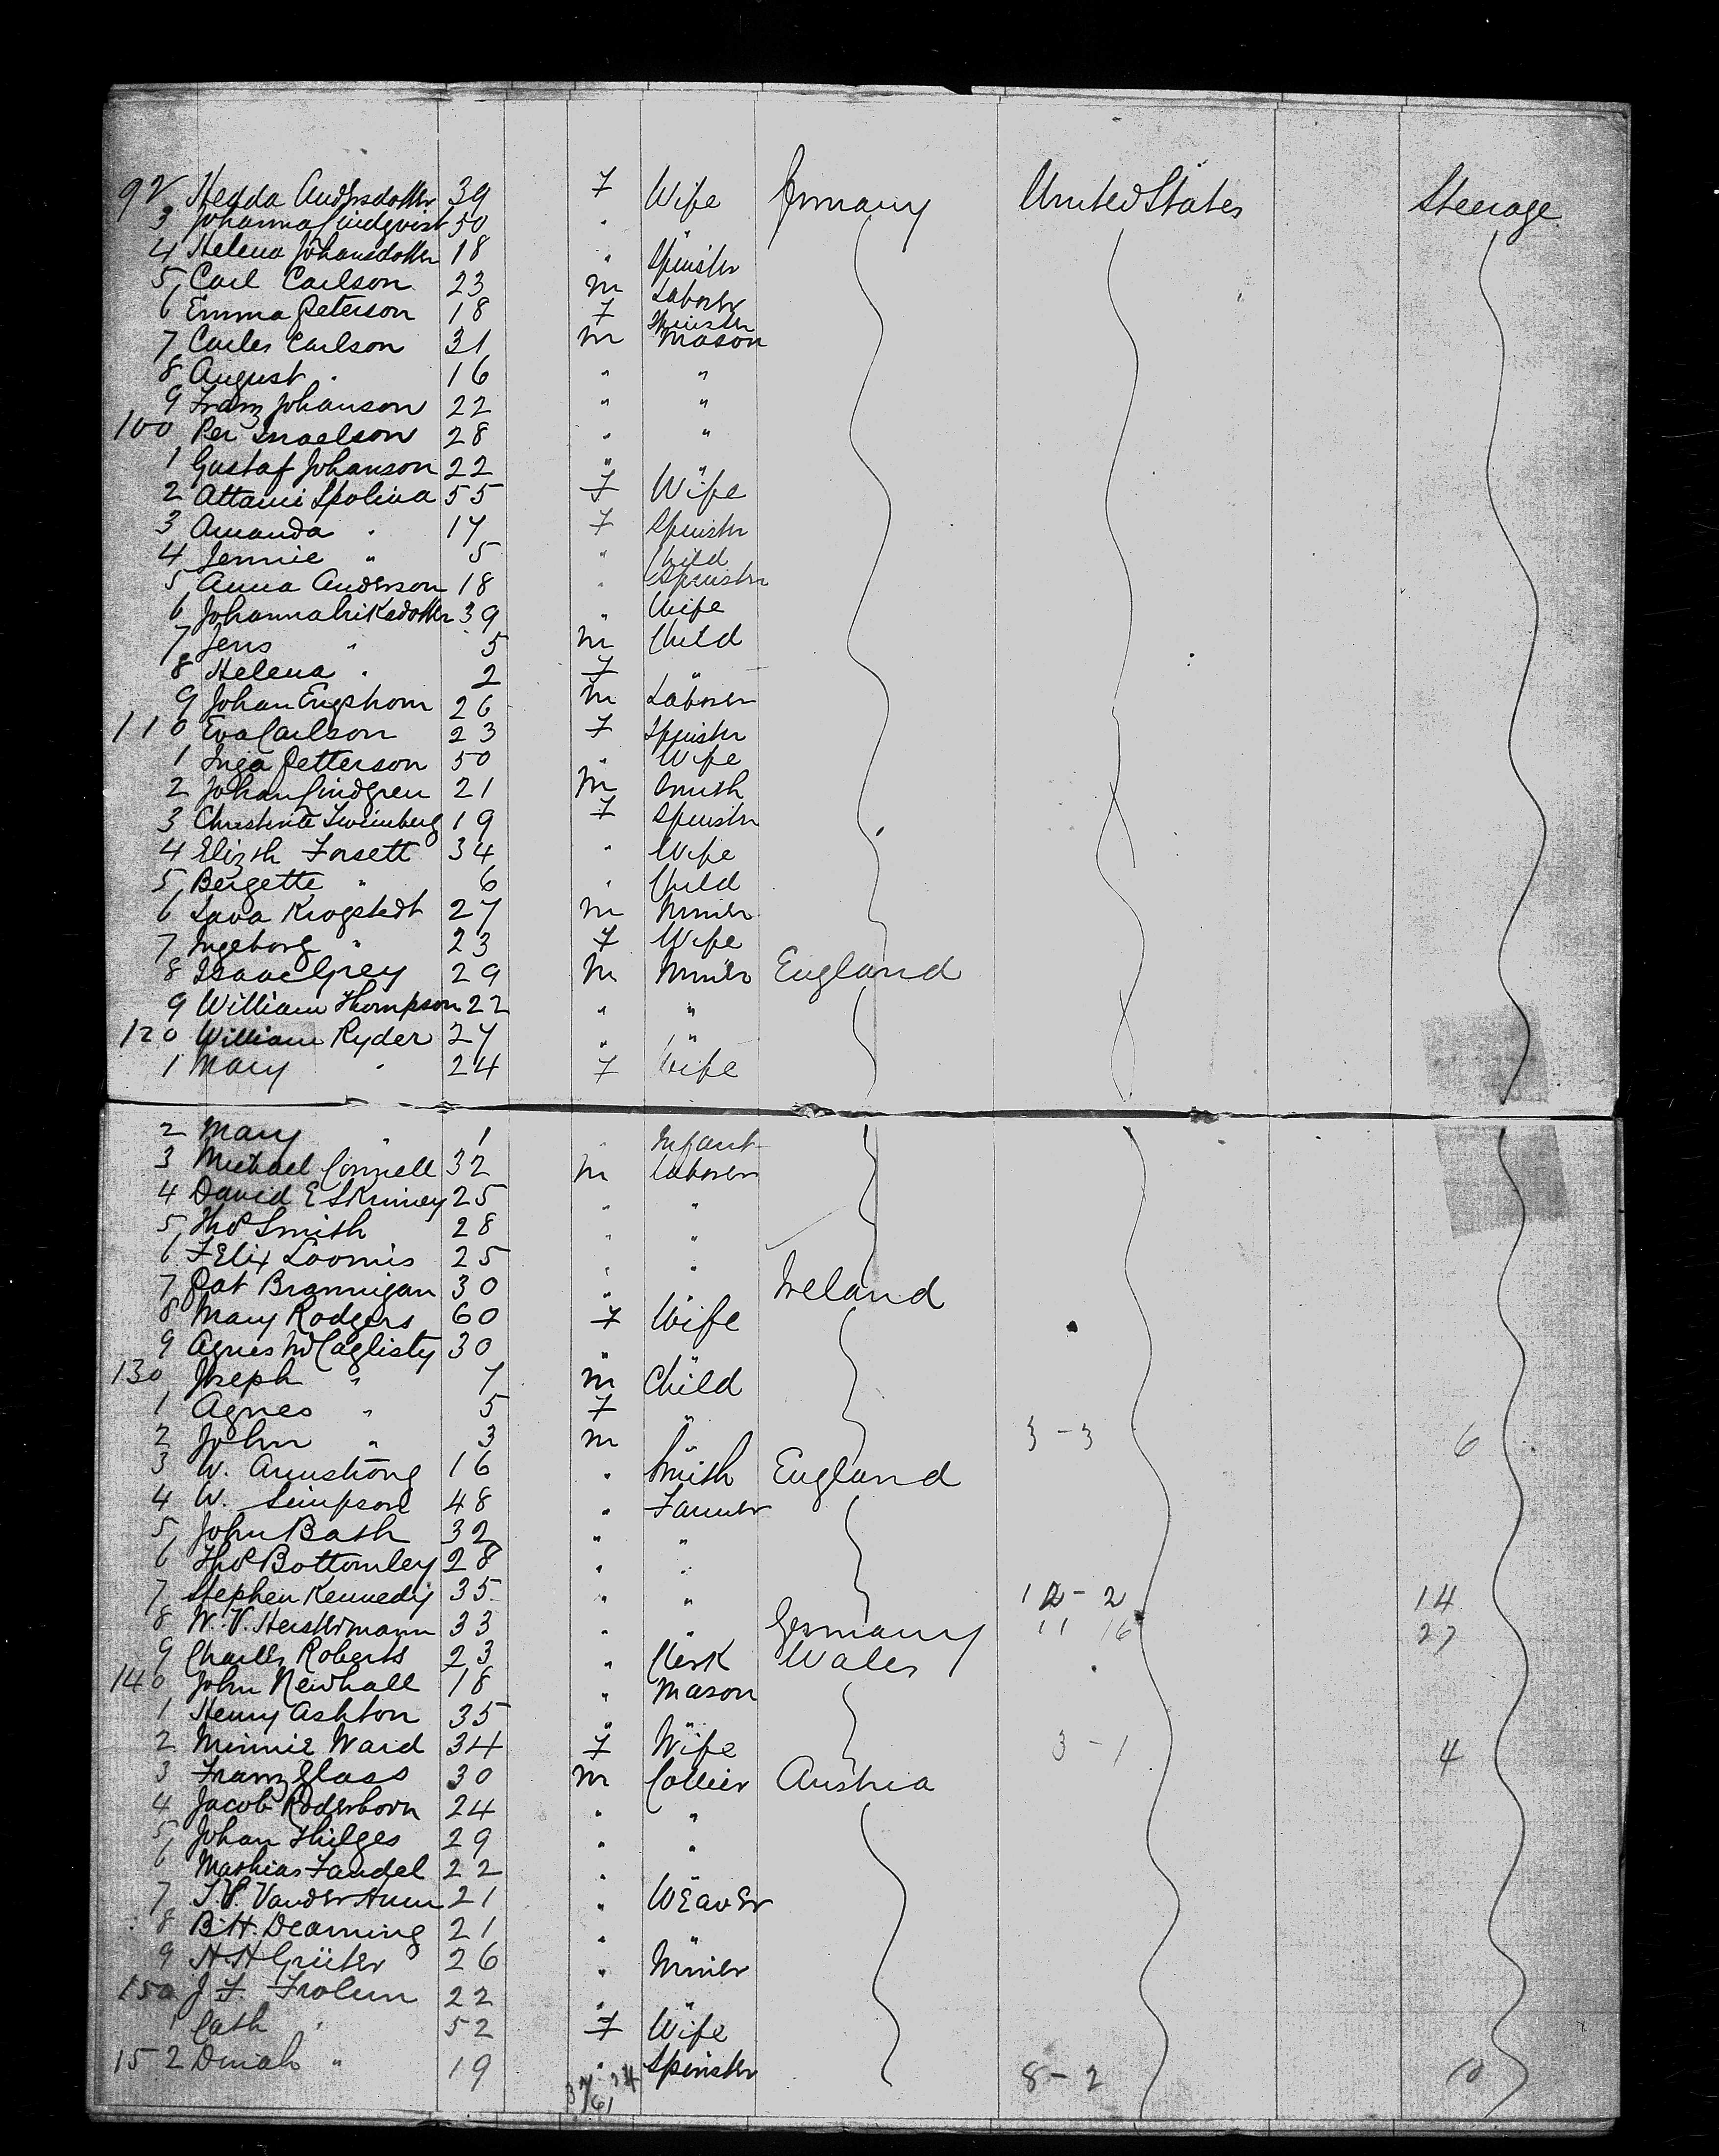 92 Hedda Andersdotter 39 F Wife Germany United States Steerage
3 Johanna Lindqvist 50 " "
4 Helena Johansdotter 18 " Spinster
5 Carl Carlson 23 M Laborer
6 Emma Peterson 18 F Spinster
7 Carles Carlson 31 M Mason
8 August " 16 " "
9 Franz Johanson 22 " "
100 Per Israelson 28 " "
1 Gustaf Johanson 22 " "
2 Attami Spolina 55 F Wife
3 Amanda " 17 F Spinster
4 Jennie " 5 " Child
5 Anna Anderson 18 " Spinster
6 Johanna Eriksdotter 39 " Wife
7 Jens " 5 M Child
8 Helena " 2 F "
9 Johan Engstrom 26 M Laborer
110 Eva Carlson 23 F Spinster
1 Inga Petterson 50 " Wife
2 Johan Lindgren 21 M Smith
3 Christinte 19 F Spinster
4 Elizth Forsett 34 " Wife
5 Bergette " 6 " Child
6 Lava Krogstedt 27 M Miner
7 Ingeborg " 23 F Wife
8 Isaac Grey 29 M Miner England
9 William Thompson 22 " "
120 William Ryder 27 " "
1 Mary " 24 F Wife
2 Mary " 1 " Infant
3 Michael Connell 32 M Laborer
4 David E Skrimey 25 " "
5 Thos Smith 28 " "
6 Felix Loomis 25 " "
7 Pat Brannigan 30 " " Ireland
8 Mary Rodgers 60 F Wife
9 Agnes McCaglisty 30 " "
130 Joseph " 7 M Child
1 Agnes " 5 F "
2 John " 3 M " 3 - 3 6
3 W. Armstrong 16 " Smith England
4 W. Simpson 48 " Farmer
5 John Bath 32 " "
6 Thos Bottomley 28 " "
7 Stephen Kennedy 35 " " 12 - 2 14
8 W. V. Heistermann 33 " " Germany 11 16 27
9 Charles Roberts 23 " Clerk Wales
140 John Newhall 18 " Mason
1 Henry Ashton 35 " "
2 Minnie Ward 34 F Wife 3 - 1 4
3 Franz Glass 30 M Collier Austria
4 Jacob Roderborn 24 " "
5 Johan Thilges 29 " "
6 Mathias Faudel 22 " "
7 Vander Hum 21 " Weaver
8 B. H. Dearning 21 " "
9 H. H. Grüter 26 " Miner
150 J. F. Frolun 22 " "
1 Cath " 52 F Wife
152 Dinah " 19 " Spinster 8 - 2 10